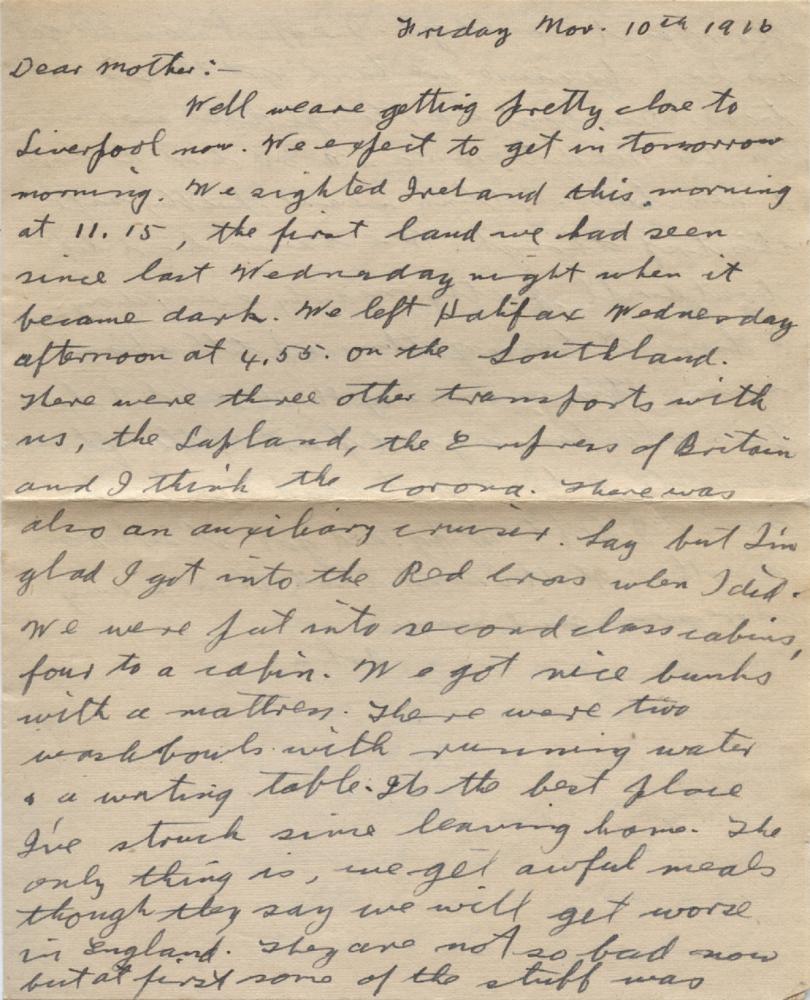 Friday Nov. 10th 1916
Dear Mother:-
Well we are getting pretty close to
Liverpool now. We expect to get in tomorrow
morning. We sighted Ireland this morning
at 11.15, the first land we had seen
since last Wednesday night when it
became dark. We left Halifax Wednesday
afternoon at 4.55. on the Southland.
There were three other transports with
us, the Lapland, the Empress of Britain
and I think the Corona. There was
also an auxiliary cruiser. Say but I'm
glad I got into the Red Cross when I did.
We were put into second class cabins,
four to a cabin. We got nice bunks
with a mattress. There were two
washbowls with running water
& a writing table. Its the best place
I've struck since leaving home. The
only thing is, we get awful meals
though they say we will get worse
in England. They are not so bad now
but at first some of the stuff was